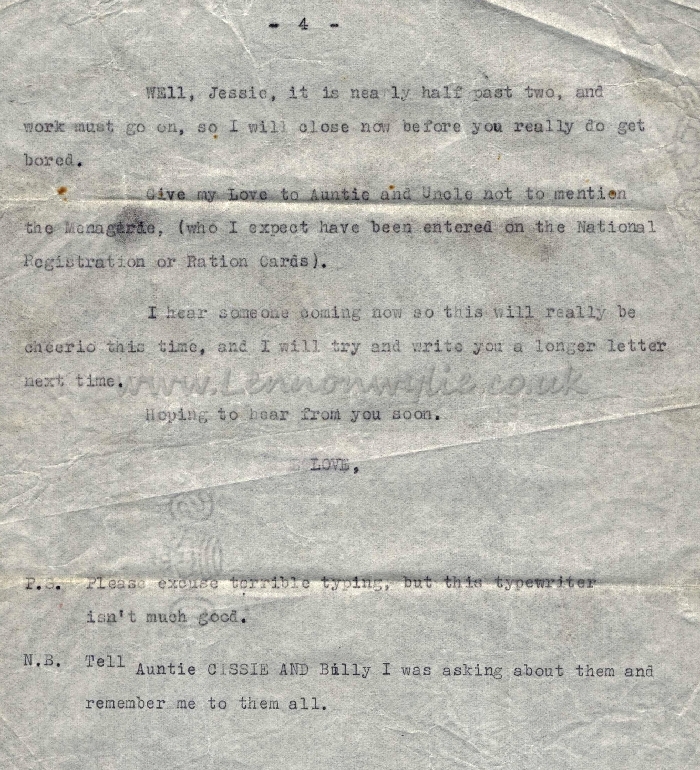 - 4 -
WEll, Jessie, it is nearly half past two, and
work must go on, so I will close now before you really do get
bored.
Give my Love to Auntie and Uncle not to mention
the Menagerie, (who I expect have been entered on the National
Registration or Ration Cards).
I hear someone coming now so this will really be
cheerio this time, and I will try and write you a longer letter
next time.
www.Lennonwylie.co.uk
Hoping to hear from you soon.
LOVE,
P.S. Please excuse terrible typing, but this typewriter
isn't much good.
N.B. Tell Auntie CISSIE AND Billy I was asking about them and
remember me to them all.